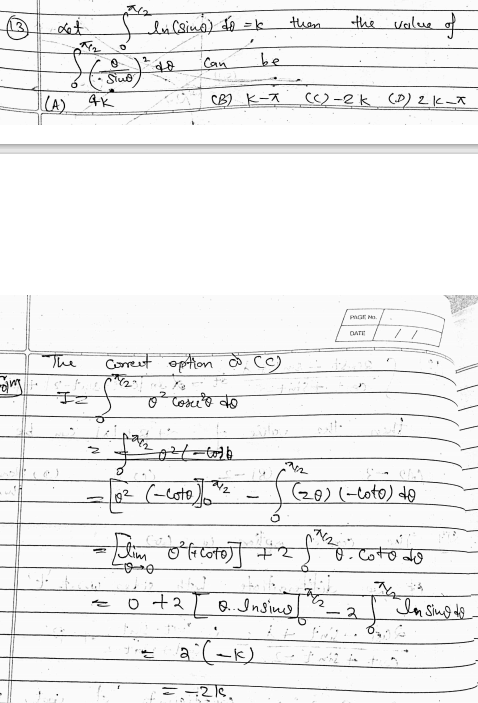 (13) Let ∫₀^{π/2} ln(sinθ) dθ = k then the value of
∫₀^{π/2} (θ/sinθ)² dθ can be
(A) 4k (B) k-π (C) -2k (D) 2k-π
PAGE No.
DATE / /
The correct option is (C)
I = ∫₀^{π/2} θ² cosec²θ dθ
= ∫₀^{π/2} θ² (-cotθ
= [θ² (-cotθ)]₀^{π/2} - ∫₀^{π/2} (2θ) (-cotθ) dθ
= [lim θ→0 θ² (+cotθ)] + 2 ∫₀^{π/2} θ. cotθ dθ
= 0 + 2 [θ. ln sinθ]₀^{π/2} - 2 ∫₀^{π/2} ln sinθ dθ
= 2 (-k)
= -2k